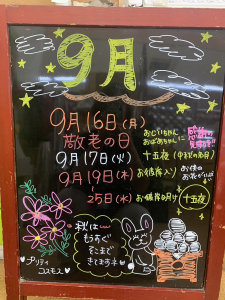 9月
9月16日(月)
敬老の日
おじいちゃん
おばあちゃんに
感謝の
気持ちを!!
9月17日(火)
十五夜(中秋の名月)
9月19日(木)
お彼岸入り
25日(水)
お彼岸明け
十五夜
秋は〜
もうすぐ
そこまで
きてますネ
プリティ
コスモス